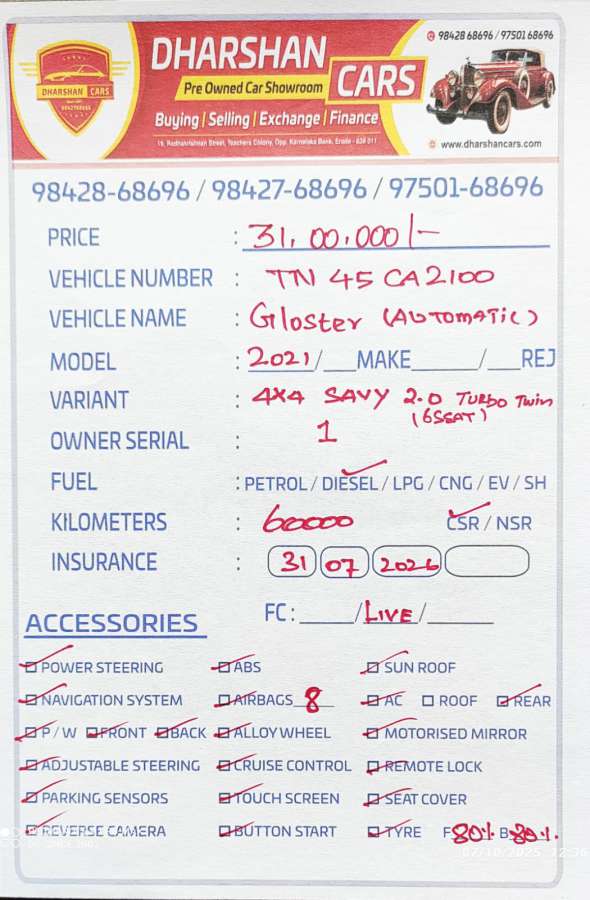 DHARSHAN CARS
98428 68696 / 97501 68696
DHARSHAN CARS
Pre Owned Car Showroom
Buying | Selling | Exchange | Finance
Teachers Colony, Opp. Karnataka Bank, Erode - 638 011
www.dharshancars.com
98428-68696 / 98427-68696 / 97501-68696
PRICE : 31,00,000/-
VEHICLE NUMBER : TN 45 CA 2100
VEHICLE NAME : Gloster (AUTOMATIC)
MODEL : 2021/___MAKE______/___REJ
VARIANT : 4X4 SAVY 2.0 TURBO Twin
(6SEAT)
OWNER SERIAL : 1
FUEL : PETROL / DIESEL / LPG / CNG / EV / SH
KILOMETERS : 60000 CSR / NSR
INSURANCE : 31 07 2026
FC : ____/LIVE/_____
ACCESSORIES
POWER STEERING ABS SUN ROOF
NAVIGATION SYSTEM AIRBAGS 8 AC ROOF REAR
P / W FRONT BACK ALLOY WHEEL MOTORISED MIRROR
ADJUSTABLE STEERING CRUISE CONTROL REMOTE LOCK
PARKING SENSORS TOUCH SCREEN SEAT COVER
REVERSE CAMERA BUTTON START TYRE F 80% B 80%
07/10/2025 12:36